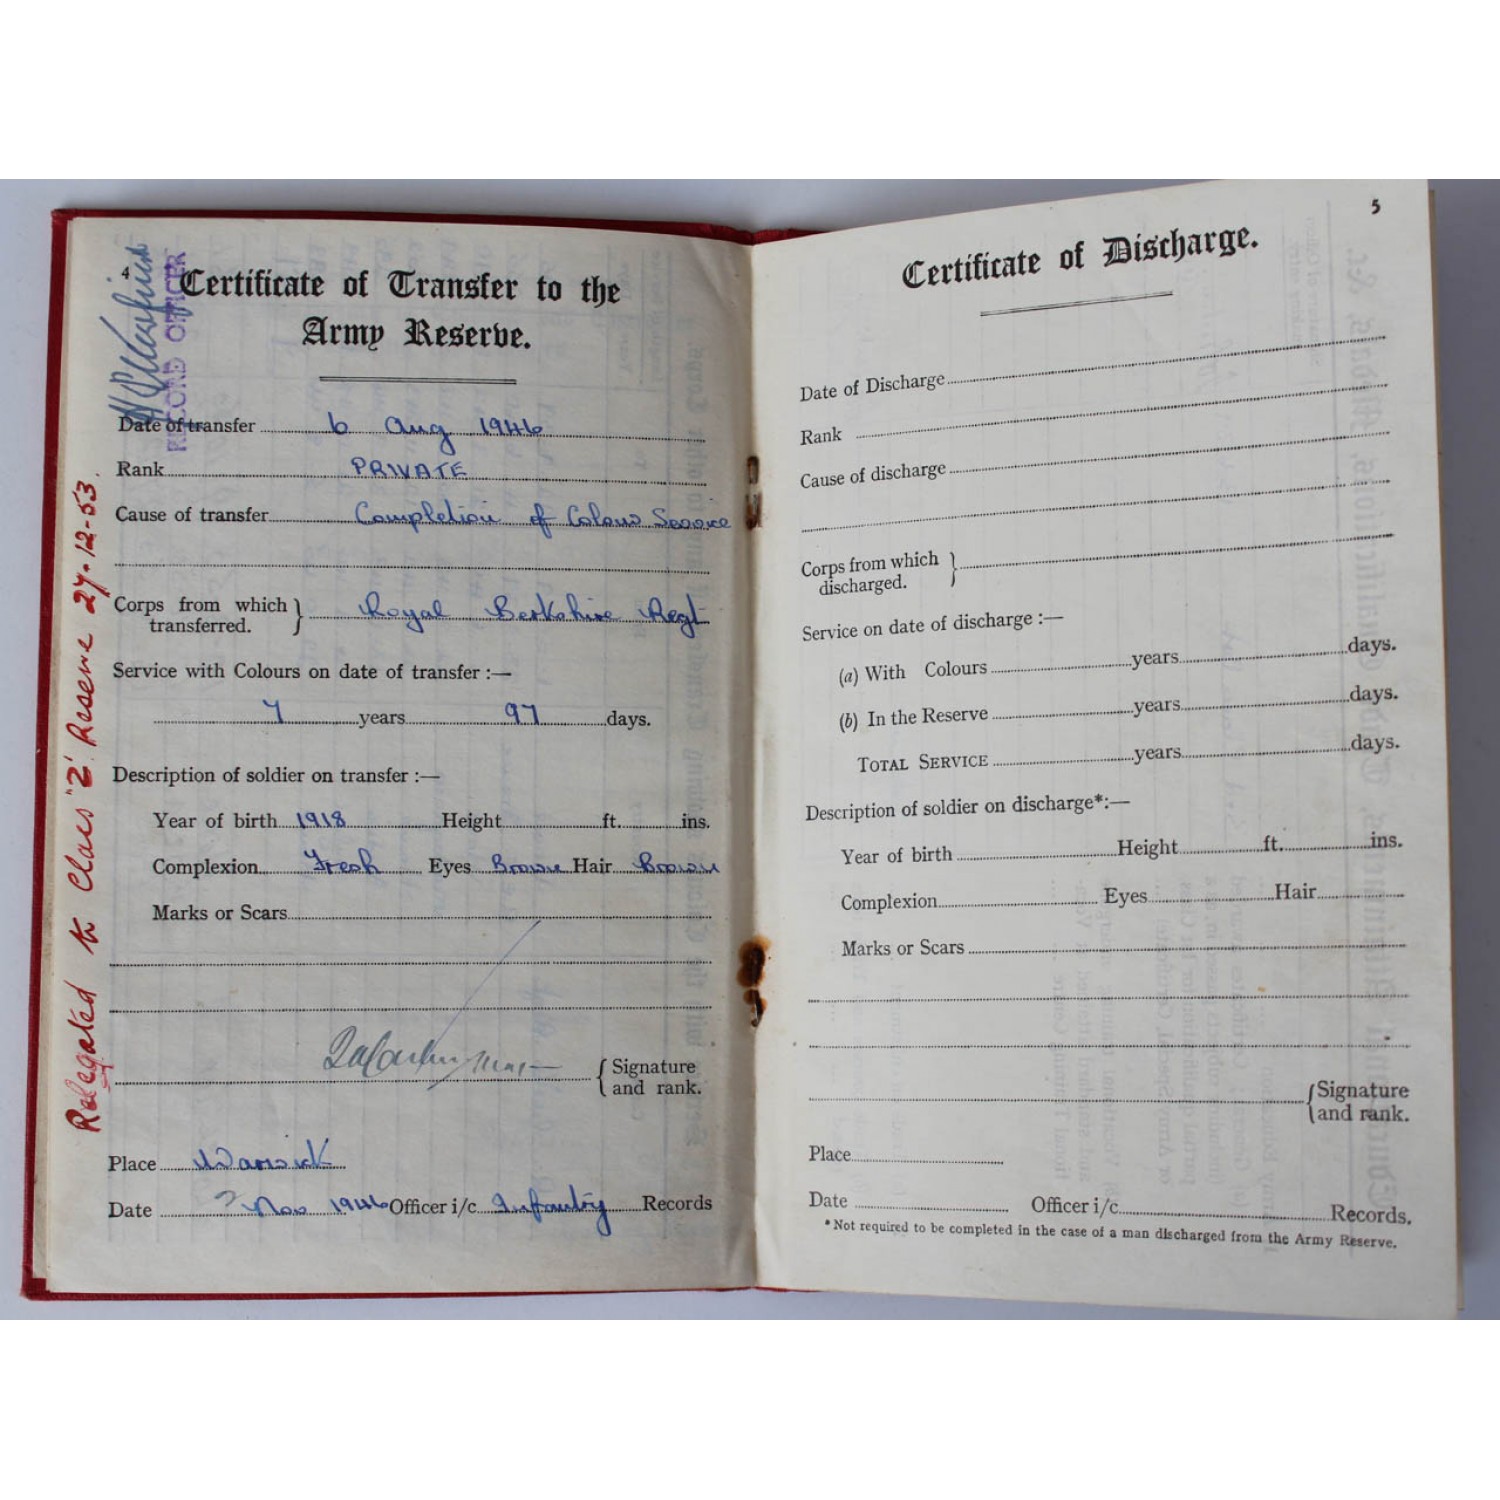 4
Certificate of Transfer to the
Army Reserve.
RECORD OFFICER
Date of transfer 6 Aug 1946
Rank PRIVATE
Cause of transfer Completion of Colour Service
Corps from which } Royal Berkshire Regt
transferred.
Service with Colours on date of transfer :—
7 years 97 days.
Description of soldier on transfer :—
Year of birth 1918 Height ft. ins.
Complexion Fresh Eyes Brown Hair Brown
Marks or Scars
{ Signature
and rank.
Place Warwick
Date Nov 1946 Officer i/c Infantry Records
Relegated to Class 'Z' Reserve 27-12-53.
5
Certificate of Discharge.
Date of Discharge
Rank
Cause of discharge
Corps from which }
discharged.
Service on date of discharge :—
(a) With Colours years days.
(b) In the Reserve years days.
TOTAL SERVICE years days.
Description of soldier on discharge*:—
Year of birth Height ft. ins.
Complexion Eyes Hair
Marks or Scars
{ Signature
and rank.
Place
Date Officer i/c Records.
*Not required to be completed in the case of a man discharged from the Army Reserve.